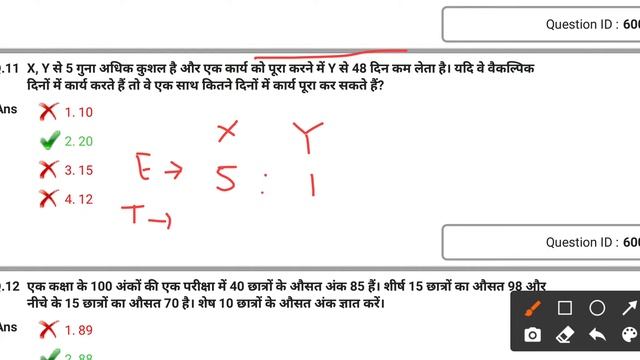 Question ID : 600
.11 X, Y से 5 गुना अधिक कुशल है और एक कार्य को पूरा करने में Y से 48 दिन कम लेता है। यदि वे वैकल्पिक
दिनों में कार्य करते हैं तो वे एक साथ कितने दिनों में कार्य पूरा कर सकते हैं?
Ans
1. 10
2. 20
3. 15
4. 12
X Y
E → 5 : 1
T →
Question ID : 600
.12 एक कक्षा के 100 अंकों की एक परीक्षा में 40 छात्रों के औसत अंक 85 हैं। शीर्ष 15 छात्रों का औसत 98 और
नीचे के 15 छात्रों का औसत 70 है। शेष 10 छात्रों के औसत अंक ज्ञात करें।
Ans
1. 89
2. 88